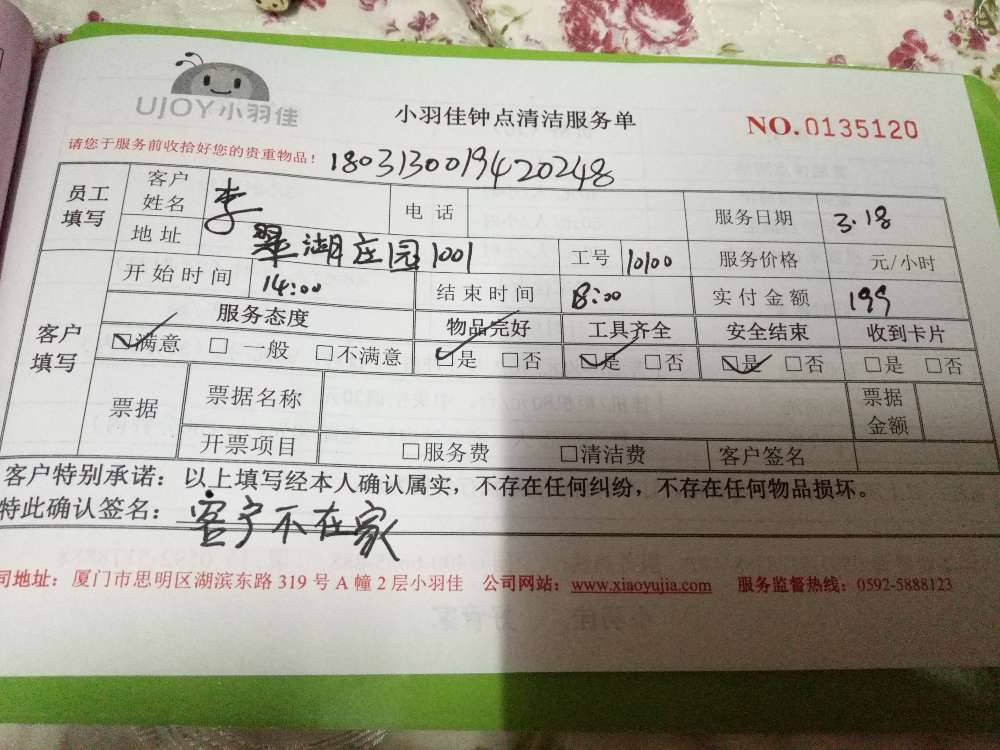 UJOY小羽佳
小羽佳钟点清洁服务单
NO.0135120
请您于服务前收拾好您的贵重物品！
1803130019420248
员工填写 客户姓名 李 电话 服务日期 3.18
地址 翠湖庄园1001 工号 10100 服务价格 元/小时
客户填写 开始时间 14:00 结束时间 18:00 实付金额 199
服务态度 物品完好 工具齐全 安全结束 收到卡片
☑满意 □一般 □不满意 ☑是 □否 ☑是 □否 ☑是 □否 □是 □否
票据 票据名称 票据金额
开票项目 □服务费 □清洁费 客户签名
客户特别承诺：以上填写经本人确认属实，不存在任何纠纷，不存在任何物品损坏。
特此确认签名：客户不在家
司地址：厦门市思明区湖滨东路319号A幢2层小羽佳 公司网站：www.xiaoyujia.com 服务监督热线：0592-5888123